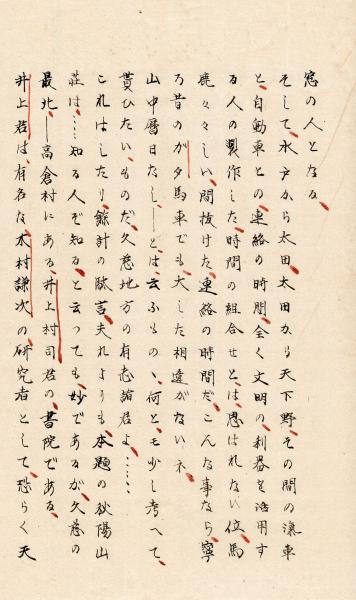 窓の人となる、
そして、水戸から太田太田から天下野、その間の滊車
と自動車との連絡の時間、全く文明の利器を活用す
る人の製作した時間の組合せとは、思はれない位馬
鹿々々しい、間抜けた連絡の時間だ、こんな事なら、寧
ろ昔のガタ馬車でも、大した相違がないネ、
山中暦日なし、――とは云ふものゝ、何とモ少し考へて、
貰ひたいものだ、久慈地方の有志諸君よ、……、
これはしたり、餘計の駄言、夫れよりも、本題の秋陽山
荘は、……知る人ぞ知ると云っても、妙であるが、久慈の
最北――高倉村にある、井上村司君の、書院である、
井上君は、有名な、木村謙次の、研究者として、恐らく天